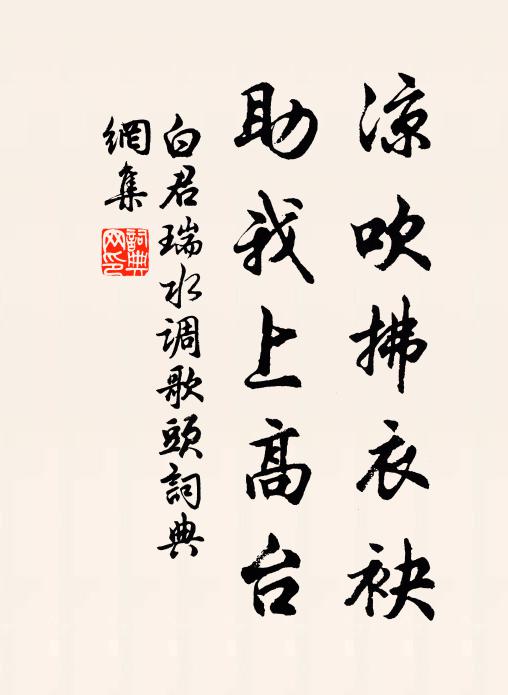 涼吹拂衣袂
助我上高台
白君瑞水调歌頭詞典
網集
詞典网印